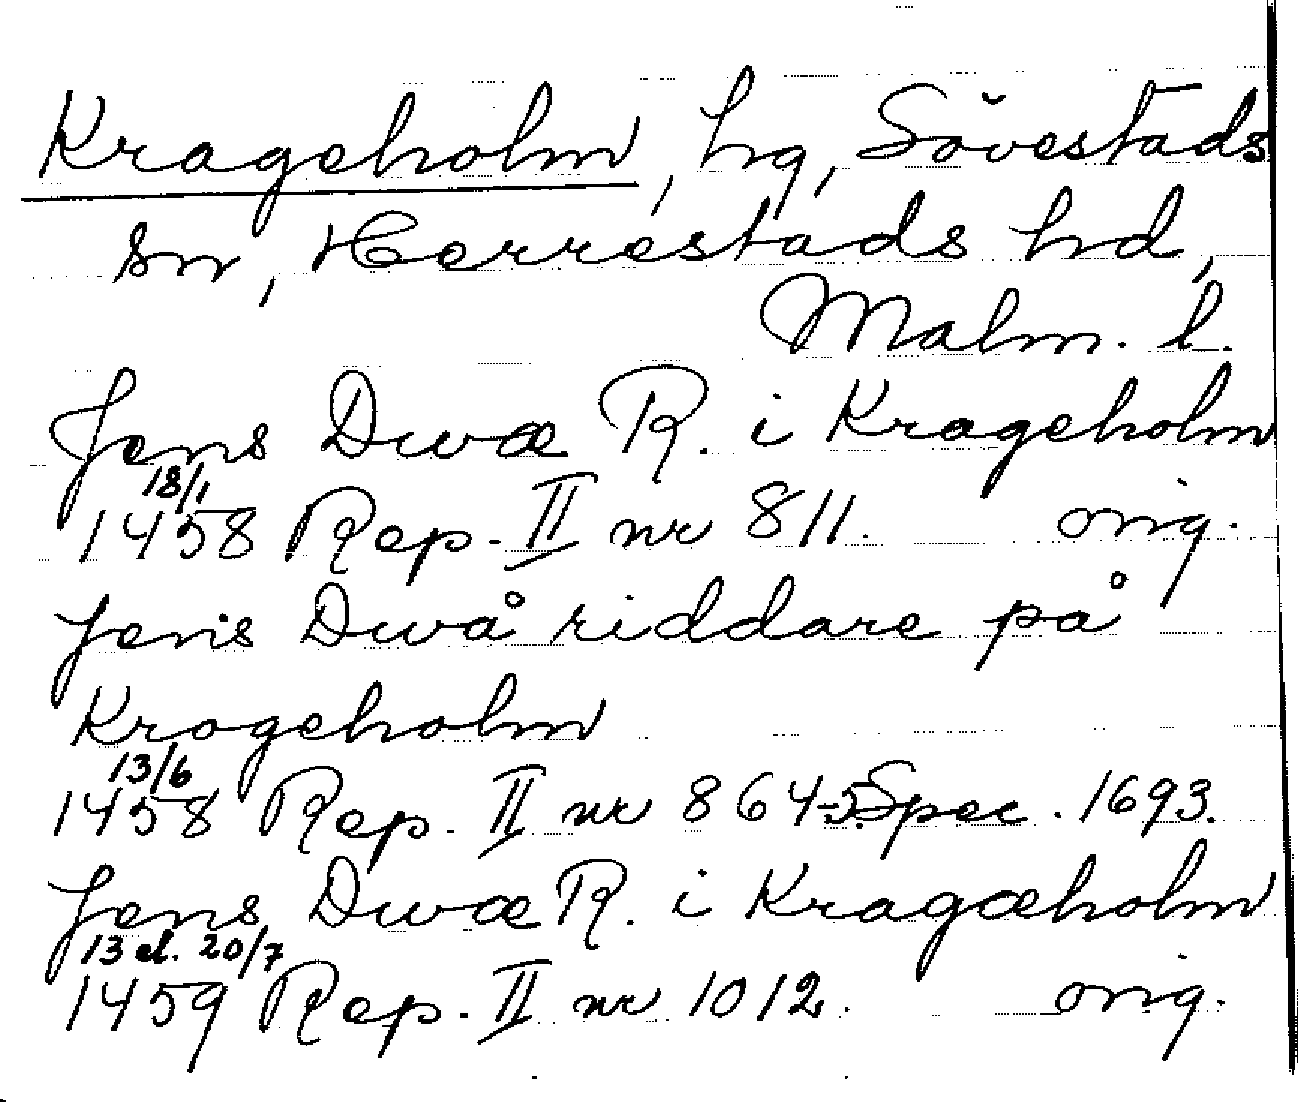 Krageholm, hg, Sövestads
sn, Herrestads hd,
Malm. l.
Jens Dwæ R. i Krageholm
18/1
1458 Rep. II nr 811. orig.
Jens Dwå riddare på
Krogeholm
13/6
1458 Rep. II nr 864-5. Spec. 1693.
Jens Dwæ R. i Kragæholm
13 el. 20/7
1459 Rep. II nr 1012. orig.